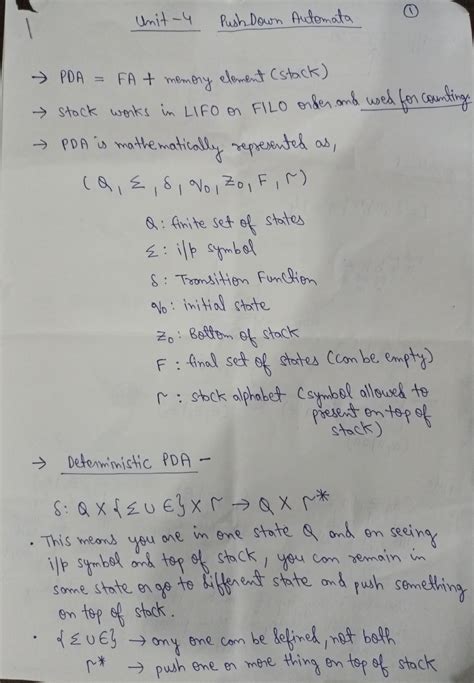 Unit-4 PushDown Automata ①
→ PDA = FA + memory element (stack)
→ Stack works in LIFO or FILO order and used for counting
→ PDA is mathematically represented as,
(Q, Σ, δ, q₀, Z₀, F, Γ)
Q: finite set of states
Σ: i/p symbol
δ: Transition Function
q₀: initial state
Z₀: Bottom of stack
F: final set of states (can be empty)
Γ: stack alphabet (symbol allowed to
present on top of
stack)
→ Deterministic PDA –
δ: Q X {Σ ∪ ∈} X Γ → Q X Γ*
• This means you are in one state Q and on seeing
i/p symbol and top of stack, you can remain in
same state or go to different state and push something
on top of stack.
• {Σ ∪ ∈} → any one can be defined, not both
Γ* → push one or more thing on top of stack